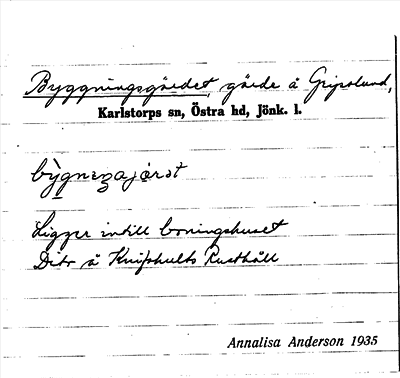 Byggningsgärdet, gärde å Gripslund,
Karlstorps sn, Östra hd, Jönk. l.
Ligger intill boningshuset
Dito å Knifshults Rusthåll
Annalisa Anderson 1935